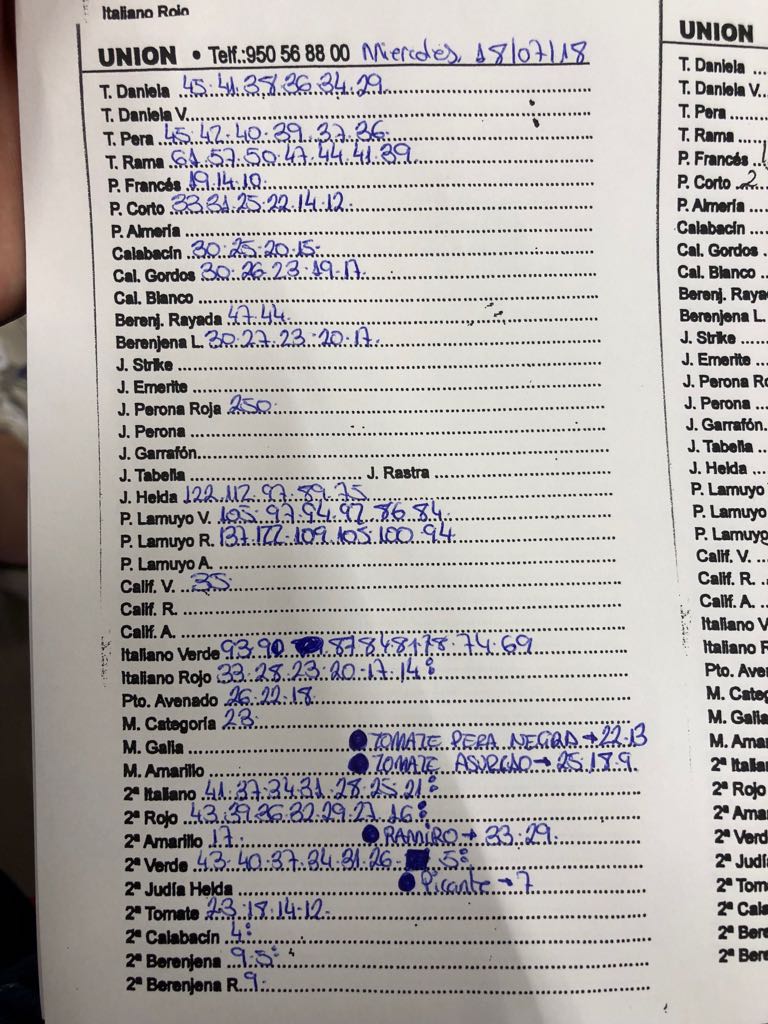 Italiano Rojo
UNION • Telf.:950 56 88 00 Miercoles, 18/07/18
T. Daniela 45.41.38.36.34.29
T. Daniela V.
T. Pera 45.42.40.39.37.36
T. Rama 61.57.50.47.44.41.39
P. Francés 19.14.10.
P. Corto 33.31.25.22.14.12
P. Almería
Calabacín 30.25.20.15.
Cal. Gordos 30.26.23.19.17
Cal. Blanco
Berenj. Rayada 47.44
Berenjena L. 30.27.23.20.17.
J. Strike
J. Emerite
J. Perona Roja 250.
J. Perona
J. Garrafón
J. Tabella J. Rastra
J. Helda 122.112.97.89.75
P. Lamuyo V. 105.97.94.92.86.84.
P. Lamuyo R. 137.122.109.105.100.94
P. Lamuyo A.
Calif. V. 35
Calif. R.
Calif. A.
Italiano Verde 93.90 87.84.81.78.74.69
Italiano Rojo 33.28.23.20.17.14:
Pto. Avenado 26.22.18
M. Categoría 23.
M. Galia TOMATE PERA NEGRA → 22.13
M. Amarillo TOMATE ASURCAO → 25.18.9.
2ª Italiano 41.37.34.31.28.25.21:
2ª Rojo 43.39.36.32.29.27.16:
2ª Amarillo 17. RAMIRO → 33.29.
2ª Verde 43.40.37.34.31.26. 5:
2ª Judía Helda Picante → 7
2ª Tomate 23.18.14.12.
2ª Calabacín 4:
2ª Berenjena 9.5:
2ª Berenjena R. 9.
UNION
T. Daniela
T. Daniela V.
T. Pera
T. Rama
P. Francés
P. Corto 2
P. Almería
Calabacín
Cal. Gordos
Cal. Blanco
Berenj. Raya
Berenjena L.
J. Strike
J. Emerite
J. Perona Ro
J. Perona
J. Garrafón.
J. Tabella
J. Helda
P. Lamuyo
P. Lamuyo
P. Lamuyo
Calif. V.
Calif. R.
Calif. A.
Italiano V
Italiano R
Pto. Aven
M. Categ
M. Galia
M. Amar
2ª Italia
2ª Rojo
2ª Ama
2ª Verd
2ª Judí
2ª Tom
2ª Cala
2ª Bere
2ª Bere